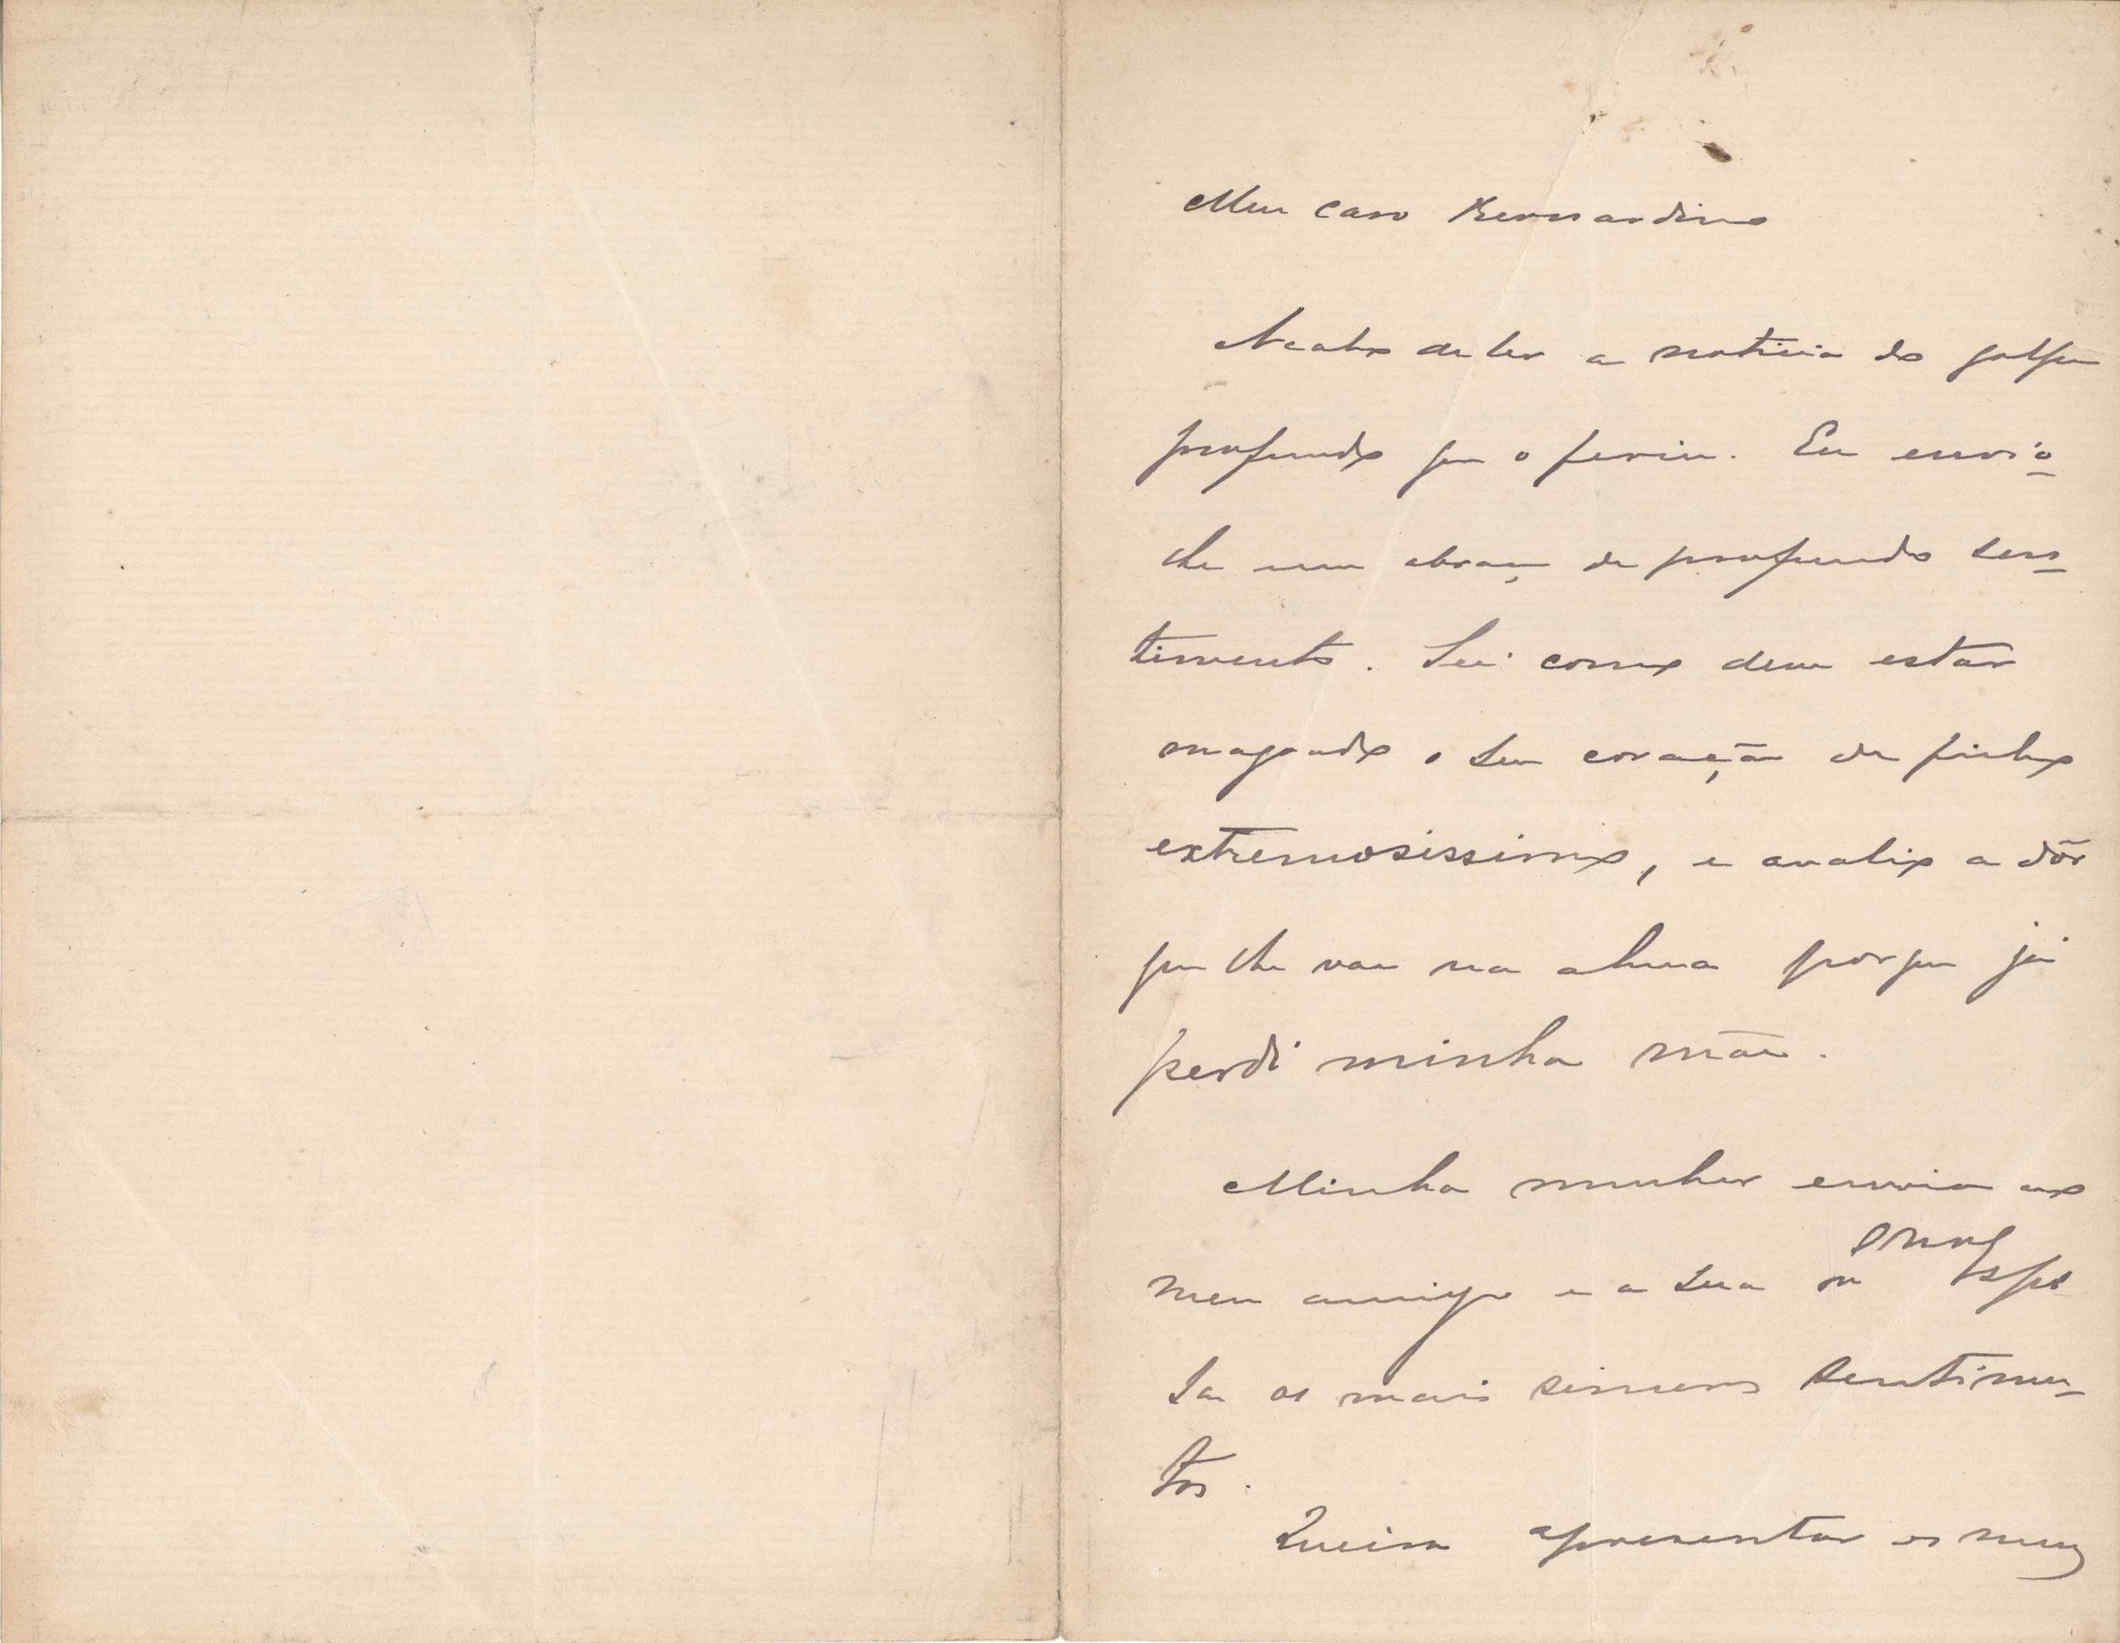 Meu caro Bernardino
Acabo de ler a noticia do golpe
profundo que o feriu. Eu envio-
lhe um abraço de profundo sen-
timento. Sei como deve estar
magoado o seu coração de filho
extremosissimo, e avalio a dôr
que lhe vae na alma porque já
perdi minha mãe.
Minha mulher envia ao
meu amigo e a sua Espo
sa os mais sinceros sentimen-
tos.
Queira apresentar os meus